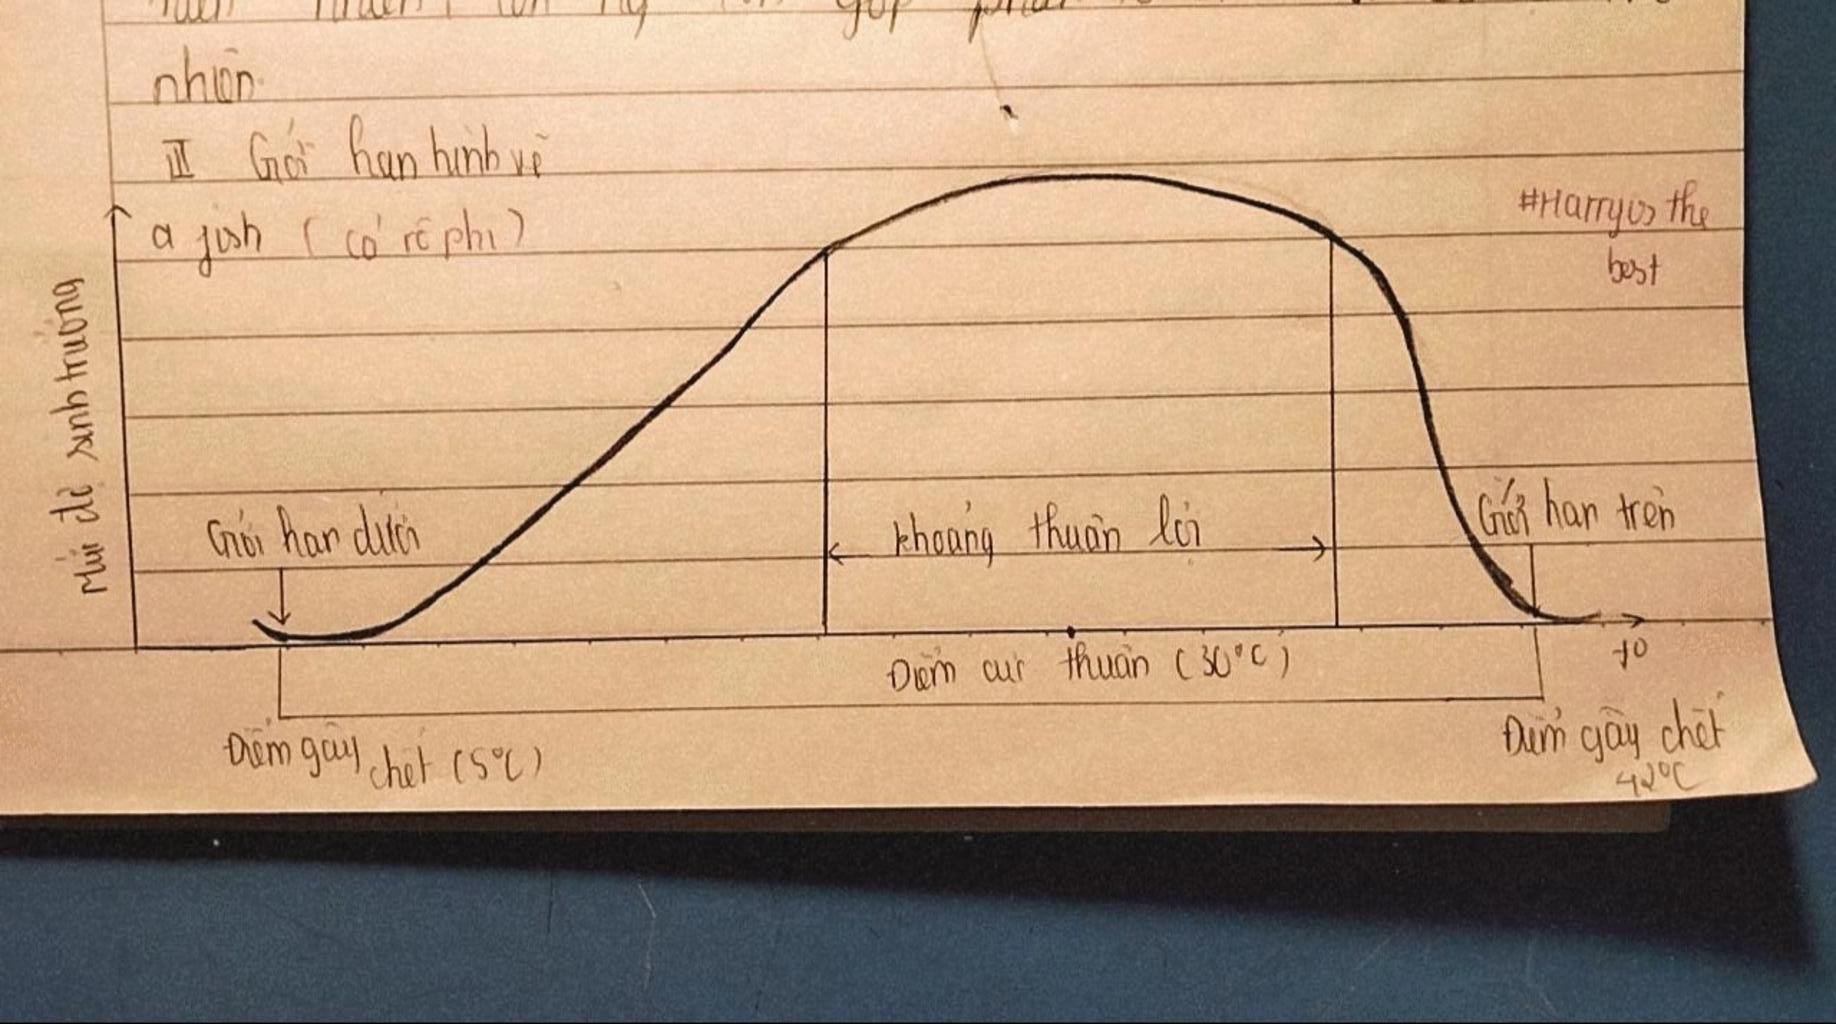 nhiên.
III Giới hạn hình vẽ
a fish ( cá rô phi )
#Harryis the
best
Mức độ sinh trưởng
Giới hạn dưới
khoảng thuận lợi
Giới hạn trên
Điểm cực thuận (30°C)
t°
Điểm gây chết (5°C)
Điểm gây chết
42°C